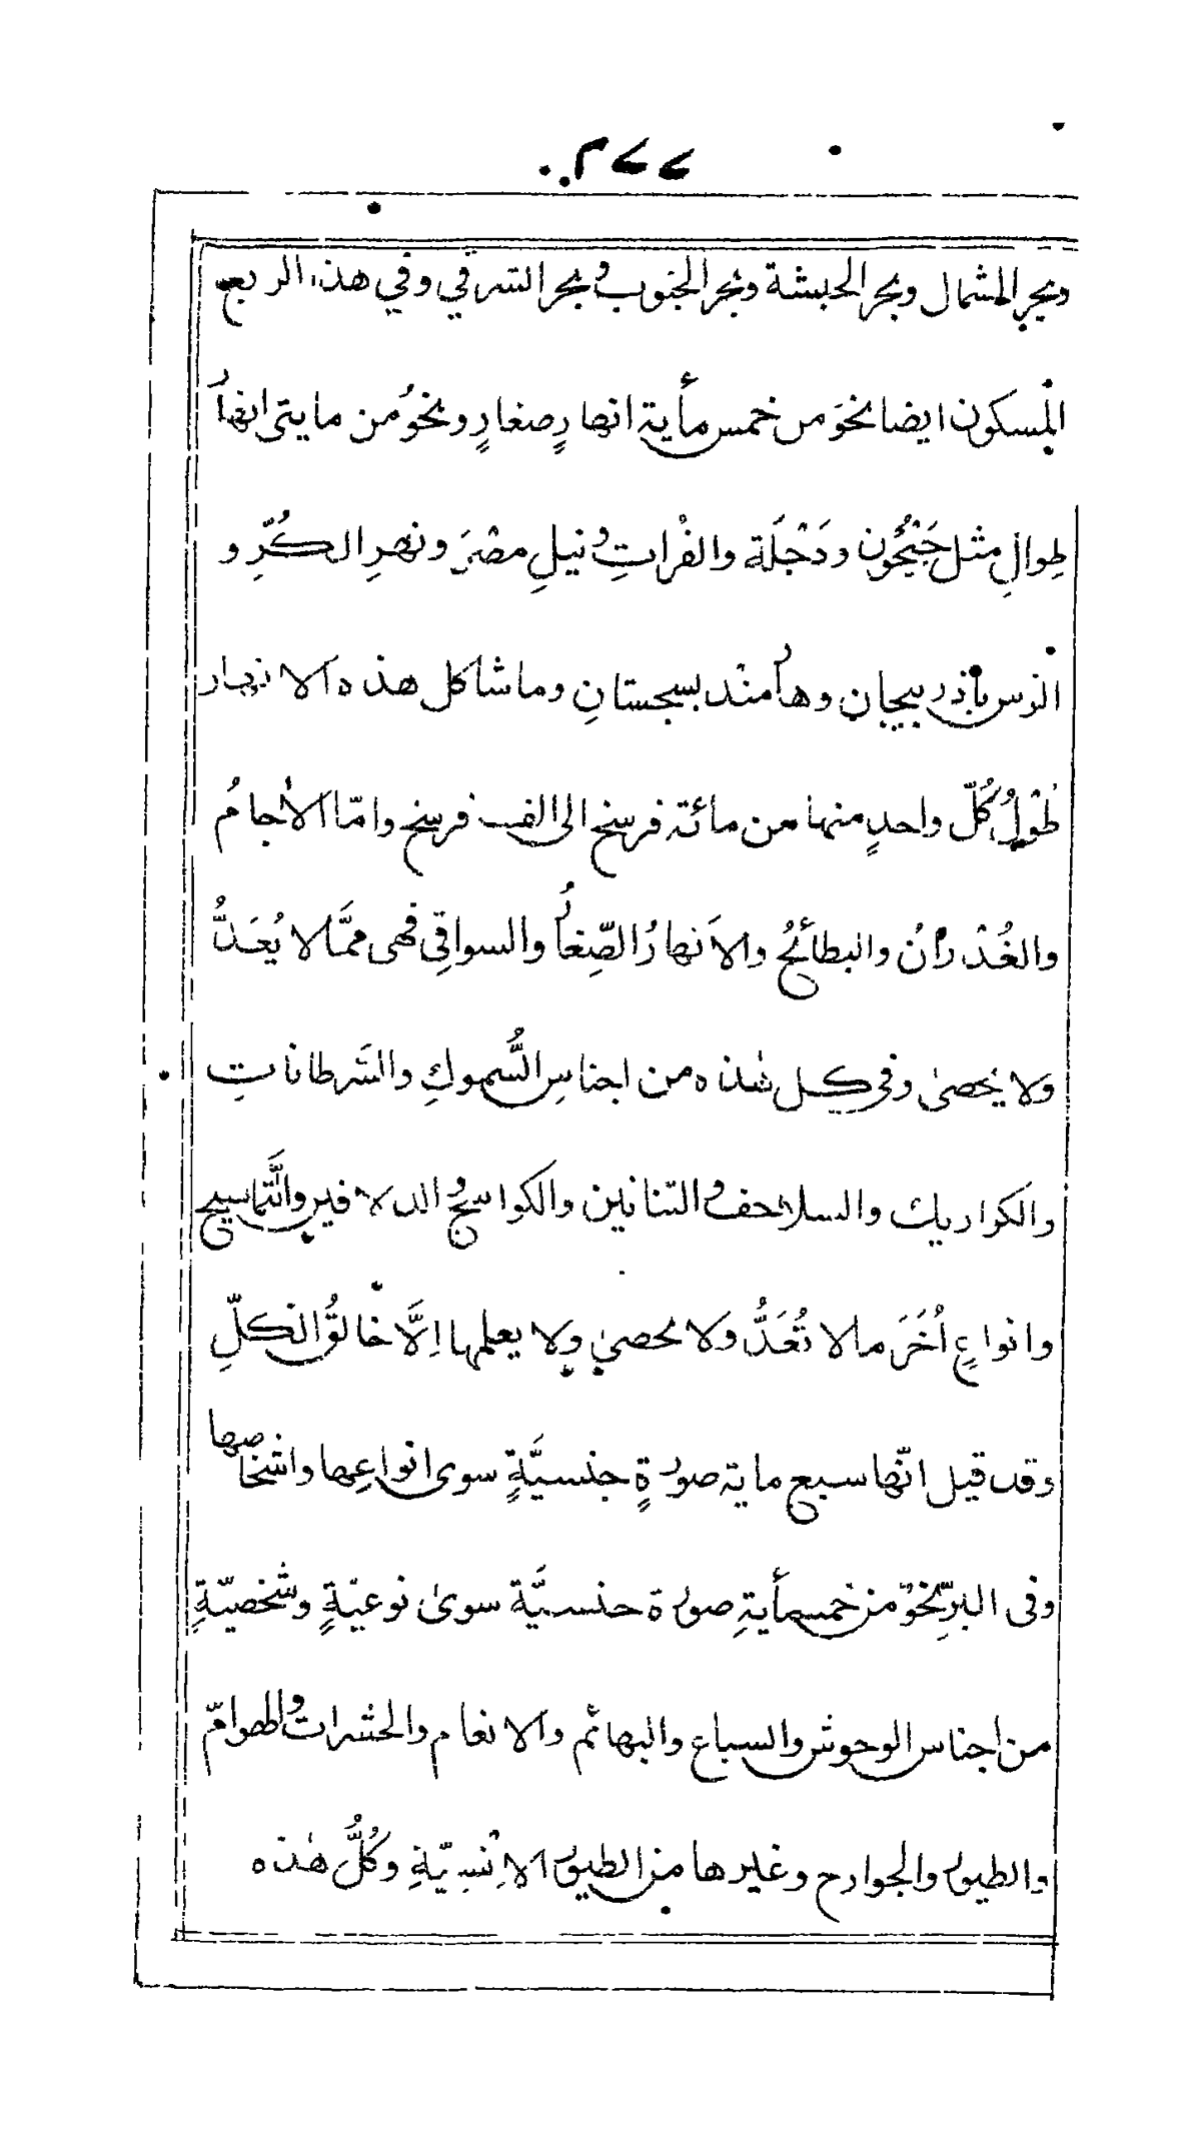 ٢٧٧
وبحر الشمال وبحر الحبشة وبحر الجنوب وبحر الشرقي وفي هذه الربع
المسكون ايضا نحوَ من خمس مأية انهارٍ صغارٍ ونحوُ من مايتى انهارُ
طِوالِ مثل جَيْحُون ودَجْلَة والفُراتِ ونيلِ مصْرَ ونهرِ الكُرِّ و
الرس بأذربيجان وهأمنْد بسجستانِ وماشاكل هذه الانهار
طْوْلُ كُلّ واحدٍ منها من مائة فرسخ الى الف فرسخ وامّا الأجامُ
والغُدْرانُ والبطائحُ والاَنهارُ الصِّغارُ والسواقِى فهى ممَّا لا يُعَدُّ
ولا يحصىٰ وفى كل هٰذه من اجناسِ السُّموكِ والسَّرطاناتِ
والكواريك والسلاحف والتنانين والكواسج والدلافين والتَّماسيح
وانواعٍ اُخَرَ مالا تُعَدُّ ولا يحصىٰ ولا يعلمها اِلَّا خالقُ الكلِّ
وقد قيل انّها سبع ماية صورةٍ جنسيَّةٍ سوى انواعِها واشخاصها
وفى البرِّ نحوٌ من خمسمأيةِ صورة جنسيَّة سوىٰ نوعيّةٍ وشخصيّةٍ
من اجناس الوحوش والسباع والبهائم والانعام والحشرات والهوامّ
والطيور والجوارح وغيرها من الطيور الاِنْسِيّةِ وكُلُّ هٰذه